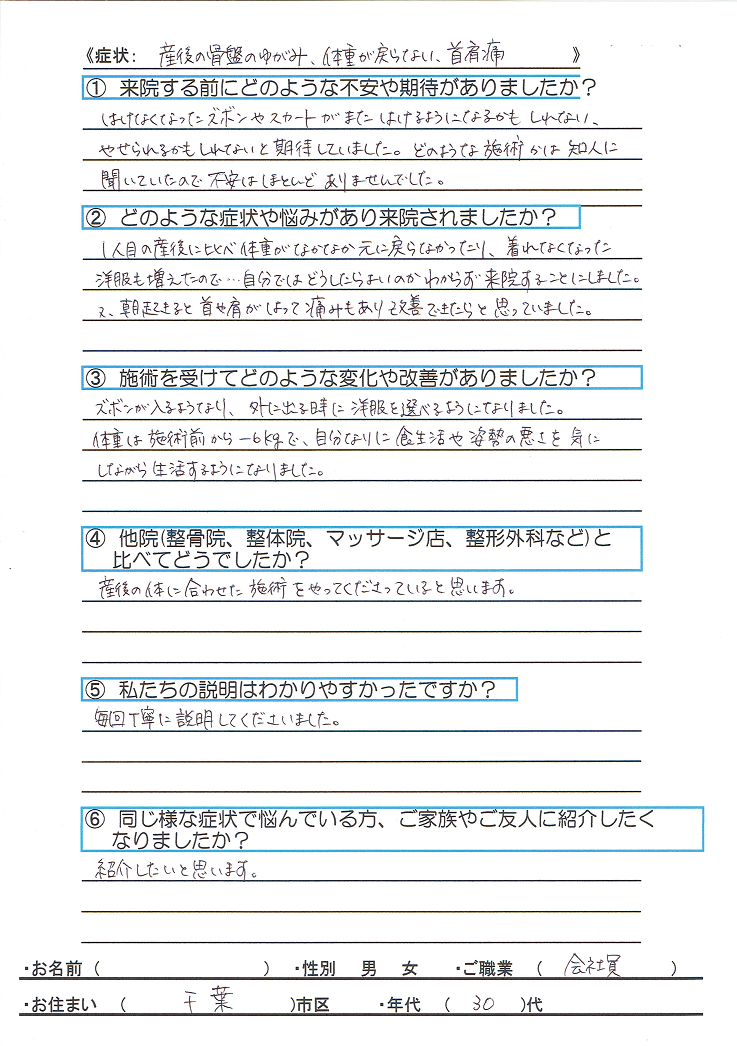 《症状: 産後の骨盤のゆがみ、体重が戻らない、首肩痛 》
① 来院する前にどのような不安や期待がありましたか？
はけなくなったズボンやスカートがまたはけるようになるかもしれない、
やせられるかもしれないと期待していました。どのような施術かは知人に
聞いていたので不安はほとんどありませんでした。
② どのような症状や悩みがあり来院されましたか？
1人目の産後に比べ体重がなかなか元に戻らなかったり、着れなくなった
洋服も増えたので…自分ではどうしたらよいのかわからず来院することにしました。
又、朝起きると首や肩がはって痛みもあり改善できたらと思っていました。
③ 施術を受けてどのような変化や改善がありましたか？
ズボンが入るようなり、外に出る時に洋服を選べるようになりました。
体重は施術前から－6kgで、自分なりに食生活や姿勢の悪さを気に
しながら生活するようになりました。
④ 他院(整骨院、整体院、マッサージ店、整形外科など)と
比べてどうでしたか？
産後の体に合わせた施術をやってくださっていると思います。
⑤ 私たちの説明はわかりやすかったですか？
毎回丁寧に説明してくださいました。
⑥ 同じ様な症状で悩んでいる方、ご家族やご友人に紹介したく
なりましたか？
紹介したいと思います。
・お名前（ ） ・性別 男 女 ・ご職業 （ 会社員 ）
・お住まい （ 千葉 )市区 ・年代 （ 30 )代